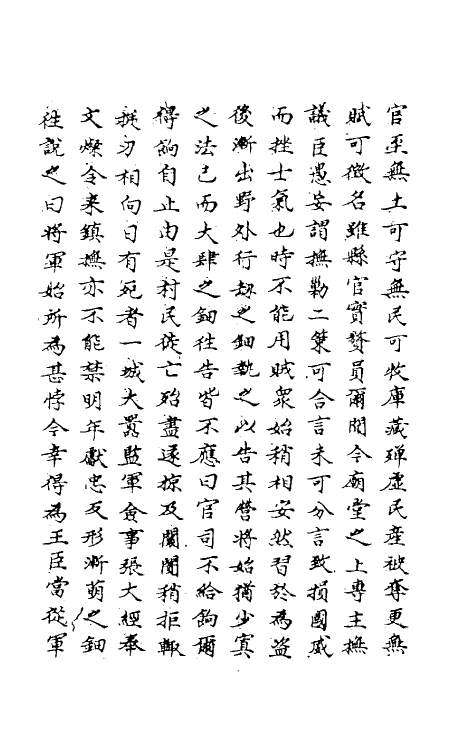 官至無土可守無民可牧庫藏殫虛民產被奪更無
賦可徵名雖縣官實贅員爾間今廟堂之上專主撫
議臣愚妄謂撫勦二策可合言未可分言致損國威
而挫士氣也時不能用賊衆始稍相安然習於為盜
後漸出野外行刼之鈿執之以告其營將始猶少寘
之法已而大肆之鈿往告皆不應曰官司不給餉爾
得餉自止由是村民徙亡殆盡遂掠及闤闠稍拒輙
挺刃相向日有死者一城大囂監軍僉事張大經奉
文燦令来鎮撫亦不能禁明年獻忠反形漸萌之鈿
往說之曰將軍始所為甚悖今幸得為王臣當從軍